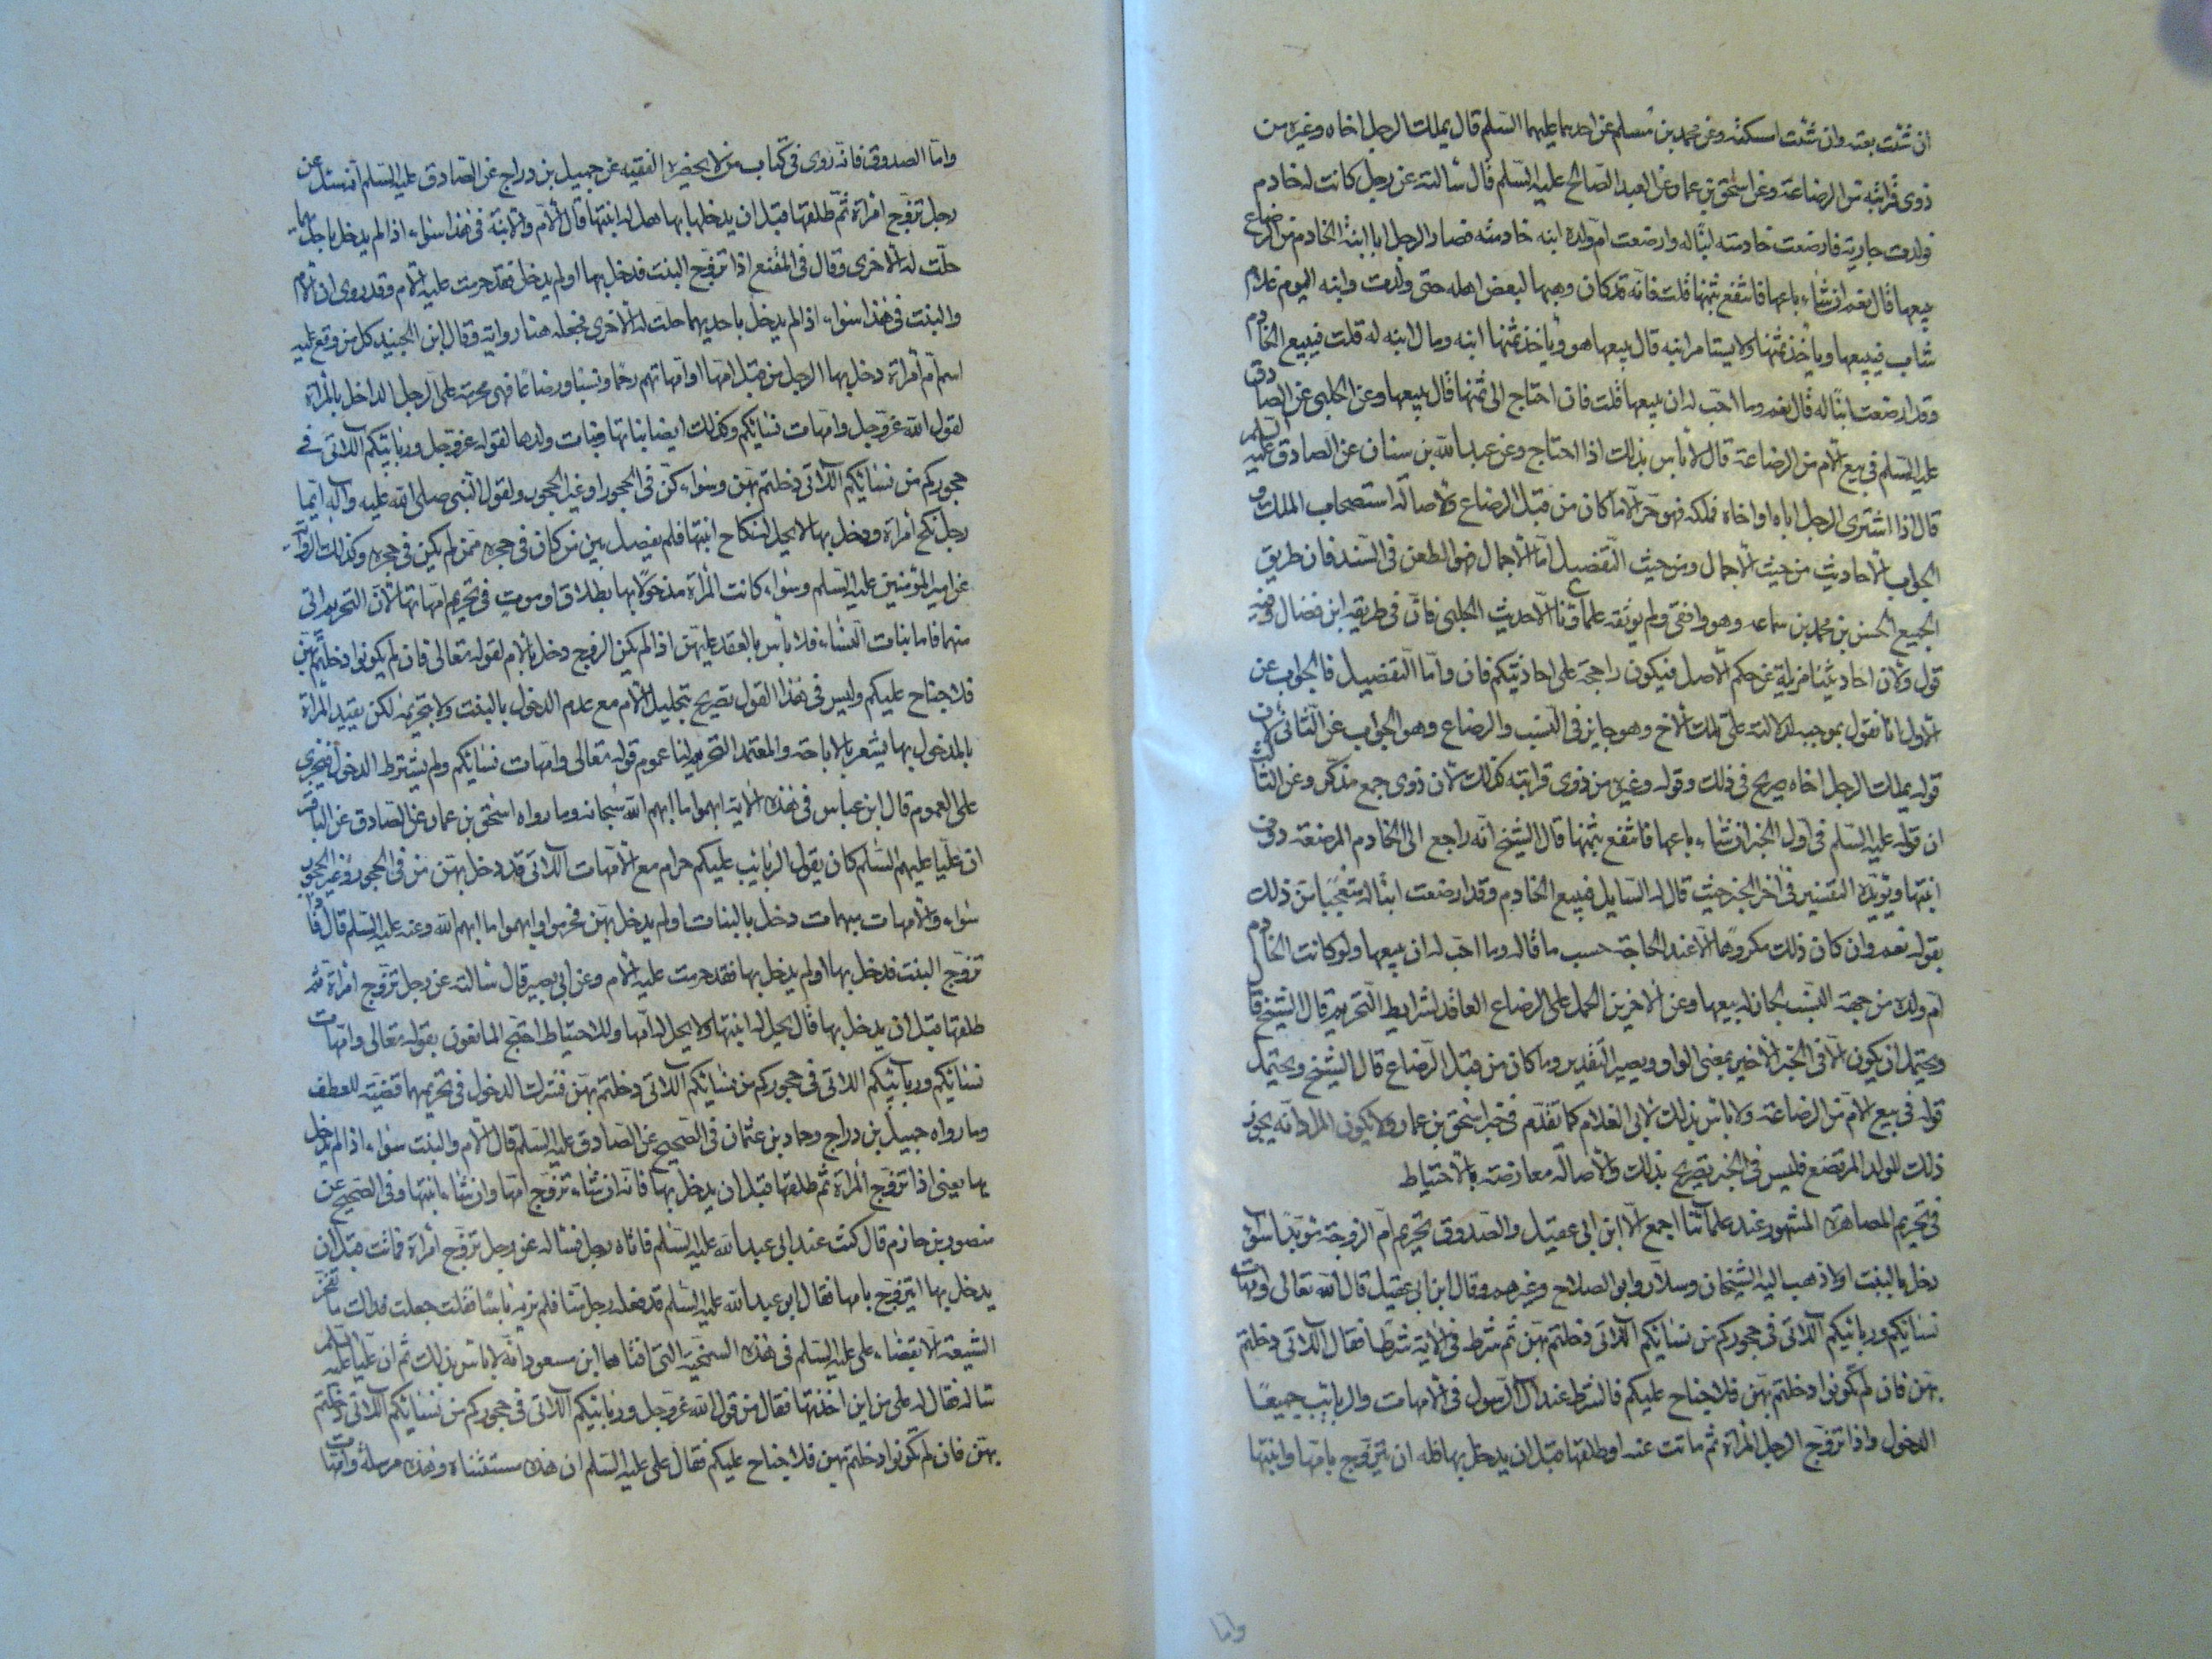 ان شئت بعته وان شئت امسكته وعن محمد بن مسلم عن احدهما عليهما السلم قال يملك الرجل اخاه وغيره من
ذوى قرابته من الرضاعة وعن اسحق بن عمار عن العبد الصالح عليه السلم قال سألته عن رجل كانت له خادم
فولدت جارية فارضعت خادمته ابنا له وارضعت ام ولده ابنه خادمته فصار الرجل ابا ابنة الخادم من الرضاع
يبيعها قال نعم ان شاء باعها فانتفع بثمنها قلت فانه قد كان وهبها لبعض اهله حتى ولدت وابنه اليوم غلام
شاب فيبيعها ويأخذ ثمنها ولا يستامر ابنه قال يبيعها هو ويأخذ ثمنها ابنه ومال ابنه له قلت فيبيع الخادم
وقد ارضعت ابنا له قال نعم وما احب له ان يبيعها قلت فان احتاج الى ثمنها قال يبيعها وعن الحلبى عن الصادق
عليه السلم فى بيع الام من الرضاعة قال لا باس بذلك اذا احتاج وعن عبد الله بن سنان عن الصادق عليه السلم
قال اذا اشترى الرجل اباه او اخاه فملكه فهو حر الا ما كان من قبل الرضاع ولاصالة استصحاب الملك و
الجواب الاحاديث من حيث الاجمال ومن حيث التفضيل اما الاجمال فهو الطعن فى السند فان طريق
الجميع الحسن بن محمد بن سماعه وهو واقفى ولم يوثقه علماؤنا الا حديث الحلبى فان فى طريقه ابن فضال وفيه
قول ولان احاديثنا مزيلة عن حكم الاصل فيكون راجحة على احاديثكم فان واما التفضيل فالجواب عن
الاول انا نقول بموجبه لدلالته على تملك الاخ وهو جايز فى النسب والرضاع وهو الجواب عن الثانى لان
قوله يملك الرجل اخاه صريح فى ذلك وقوله وغيره من ذوى قرابته كذلك لان ذوى جمع مذكر وعن الثالث
ان قوله عليه السلم فى اول الخبر ان شاء باعها فانتفع بثمنها قال الشيخ انه راجع الى الخادم المرضعة دون
ابنتها ويؤيده التفسير فى اخر الخبر حيث قال له السايل فيبيع الخادم وقد ارضعت ابنا له متعجبا من ذلك
بقوله نعم وان كان ذلك مكروها الا عند الحاجة حسب ما قاله وما احب له ان يبيعها ولو كانت الخادم
ام ولده من جهة النسب لجاز له بيعها وعن الاخيرين الحمل على الرضاع الفاقد لشرايط التحريم قال الشيخ
ويحتمل ان يكون الا فى الخبر الاخير بمعنى الواو ويصير التقدير وما كان من قبل الرضاع قال الشيخ ويحتمل
قوله فى بيع الام من الرضاعة ولا باس بذلك لابى الغلام كما تقدم فى خبر اسحق بن عمار ولا يكون المراد انه يجوز
ذلك للولد المرتضع فليس فى الخبر تصريح بذلك والاصالة معارضة بالاحتياط
فى تحريم المصاهرة المشهور عند علمائنا اجمع الا ابن ابى عقيل والصدوق تحريم ام الزوجة مؤبدا سواء
دخل بالبنت اولا ذهب اليه الشيخان وسلار وابو الصلاح وغيرهم وقال ابن ابى عقيل قال الله تعالى وامهات
نسائكم وربائبكم اللاتى فى حجوركم من نسائكم اللاتى دخلتم بهن ثم شرط فى الاية شرطا فقال اللاتى دخلتم
بهن فان لم تكونوا دخلتم بهن فلا جناح عليكم فالشرط عند ال الرسول فى الامهات والربائب جميعا
الدخول واذا تزوج الرجل المراة ثم ماتت عنه او طلقها قبل ان يدخل بها فله ان يتزوج بامها وابنتها
واما
واما الصدوق فانه روى فى كتاب من لا يحضره الفقيه عن جميل بن دراج عن الصادق عليه السلم انه سئل عن
رجل تزوج امراة ثم طلقها قبل ان يدخل بها هل له ابنتها قال الام والابنة فى هذا سواء اذا لم يدخل باحديهما
حلت له الاخرى وقال فى المقنع اذا تزوج البنت فدخل بها او لم يدخل فقد حرمت عليه الام وقد روى ان الام
والبنت فى هذا سواء اذا لم يدخل باحديهما حلت له الاخرى فجعله هنا رواية وقال ابن الجنيد كل من وقع عليه
اسم ام امراة دخل بها الرجل من قبل امها او امهاتهم رحما ونسبا ورضاعا فهى محرمة على الرجل الداخل بالمراة
لقول الله عز وجل وامهات نسائكم وكذلك ايضا بناتها وبنات ولدها لقوله عز وجل وربائبكم اللاتى فى
حجوركم من نسائكم اللاتى دخلتم بهن وسواء كن فى الحجور او غير الحجور ولقول النبى صلى الله عليه وآله ايما
رجل نكح امراة ودخل بها لا يحل له نكاح ابنتها فلم يفصل بين من كان فى حجره ممن لم يكن فى حجره وكذلك الرواية
عن امير المؤمنين عليه السلم وسواء كانت المراة مدخولا بها بطلاق او موت فى تحريم امهاتها لان التحريم اتى
منهما فاما بنات النساء فلا باس بالعقد عليهن اذا لم يكن الزوج دخل بالام لقوله تعالى فان لم يكونوا دخلتم بهن
فلا جناح عليكم وليس فى هذا القول تصريح بتحليل الام مع عدم الدخول بالبنت ولا بتحريمه لكن تقييد المراة
بالمدخول بها يشعر بالاباحة والمعتمد التحريم لنا عموم قوله تعالى وامهات نسائكم ولم يشترط الدخول فيجرى
على العموم قال ابن عباس فى هذه الاية ابهموا ما ابهم الله سبحانه وما رواه اسحق بن عمار عن الصادق عن الباقر
ان عليا عليهم السلم كان يقول الربائب عليكم حرام مع الامهات اللاتى قد دخل بهن من فى الحجور وغير الحجور
سواء والامهات مبهمات دخل بالبنات او لم يدخل بهن فحرموا وابهموا ما ابهم الله وعنه عليه السلم قال فاذا
تزوج البنت فدخل بها او لم يدخل بها فقد حرمت عليه الام وعن ابى بصير قال سألته عن رجل تزوج امراة ثم
طلقها قبل ان يدخل بها قال يحل له ابنتها ولا يحل له امها وللاحتياط احتج المانعون بقوله تعالى وامهات
نسائكم وربائبكم اللاتى فى حجوركم من نسائكم اللاتى دخلتم بهن فشرك الدخول فى تحريمهما قضية للعطف
وما رواه جميل بن دراج وحماد بن عثمان فى الصحيح عن الصادق عليه السلم قال الام والبنت سواء اذا لم يدخل
بها يعنى اذا تزوج المراة ثم طلقها قبل ان يدخل بها فانه ان شاء تزوج امها وان شاء ابنتها وفى الصحيح عن
منصور بن حازم قال كنت عند ابى عبد الله عليه السلم فاتاه رجل فسأله عن رجل تزوج امراة فماتت قبل ان
يدخل بها ايتزوج بامها فقال ابو عبد الله عليه السلم قد فعله رجل منا فلم نر به باسا فقلت جعلت فداك ما تفخر
الشيعة الا بقضاء على عليه السلم فى هذه السمخية التى افتاها ابن مسعود انه لا باس بذلك ثم ان عليا عليه السلم
سأله فقال له على من اين اخذتها فقال من قول الله عز وجل وربائبكم اللاتى فى حجوركم من نسائكم اللاتى دخلتم
بهن فان لم تكونوا دخلتم بهن فلا جناح عليكم فقال على عليه السلم ان هذه مستثناة وهذه مرسلة وامهات